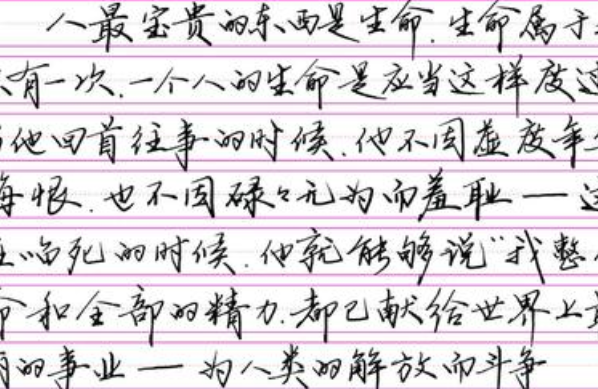 人最宝贵的东西是生命.生命属于
有一次.一个人的生命是应当这样度过
他回首往事的时候.他不因虚度年
悔恨.也不因碌々无为而羞耻——这
临死的时候.他就能够说"我整
命和全部的精力.都已献给世界上
的事业——为人类的解放而斗争